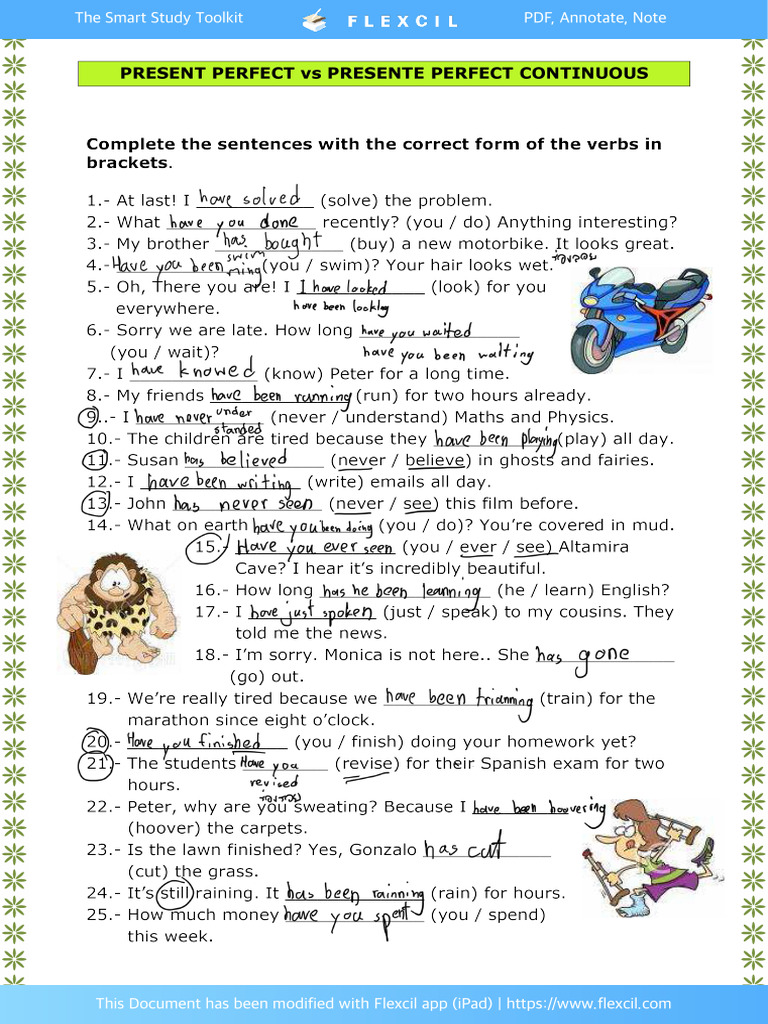 The Smart Study Toolkit FLEXCIL PDF, Annotate, Note
PRESENT PERFECT vs PRESENTE PERFECT CONTINUOUS
Complete the sentences with the correct form of the verbs in
brackets.
1.- At last! I have solved (solve) the problem.
2.- What have you done recently? (you / do) Anything interesting?
3.- My brother has bought (buy) a new motorbike. It looks great.
4.- Have you been swimming (you / swim)? Your hair looks wet.
5.- Oh, There you are! I I have looked (look) for you
everywhere. have been looking
6.- Sorry we are late. How long have you waited
(you / wait)? have you been waiting
7.- I have knowed (know) Peter for a long time.
8.- My friends have been running (run) for two hours already.
9..- I have never understanded (never / understand) Maths and Physics.
10.- The children are tired because they have been playing (play) all day.
11.- Susan has believed (never / believe) in ghosts and fairies.
12.- I have been writing (write) emails all day.
13.- John has never seen (never / see) this film before.
14.- What on earth have you been doing (you / do)? You're covered in mud.
15.- Have you ever seen (you / ever / see) Altamira
Cave? I hear it's incredibly beautiful.
16.- How long has he been learning (he / learn) English?
17.- I have just spoken (just / speak) to my cousins. They
told me the news.
18.- I'm sorry. Monica is not here.. She has gone
(go) out.
19.- We're really tired because we have been trianning (train) for the
marathon since eight o'clock.
20.- Have you finished (you / finish) doing your homework yet?
21.- The students Have you (revise) for their Spanish exam for two
hours. revised
22.- Peter, why are you sweating? Because I have been hoovering
(hoover) the carpets.
23.- Is the lawn finished? Yes, Gonzalo has cut
(cut) the grass.
24.- It's still raining. It has been rainning (rain) for hours.
25.- How much money have you spent (you / spend)
this week.
This Document has been modified with Flexcil app (iPad) | https://www.flexcil.com